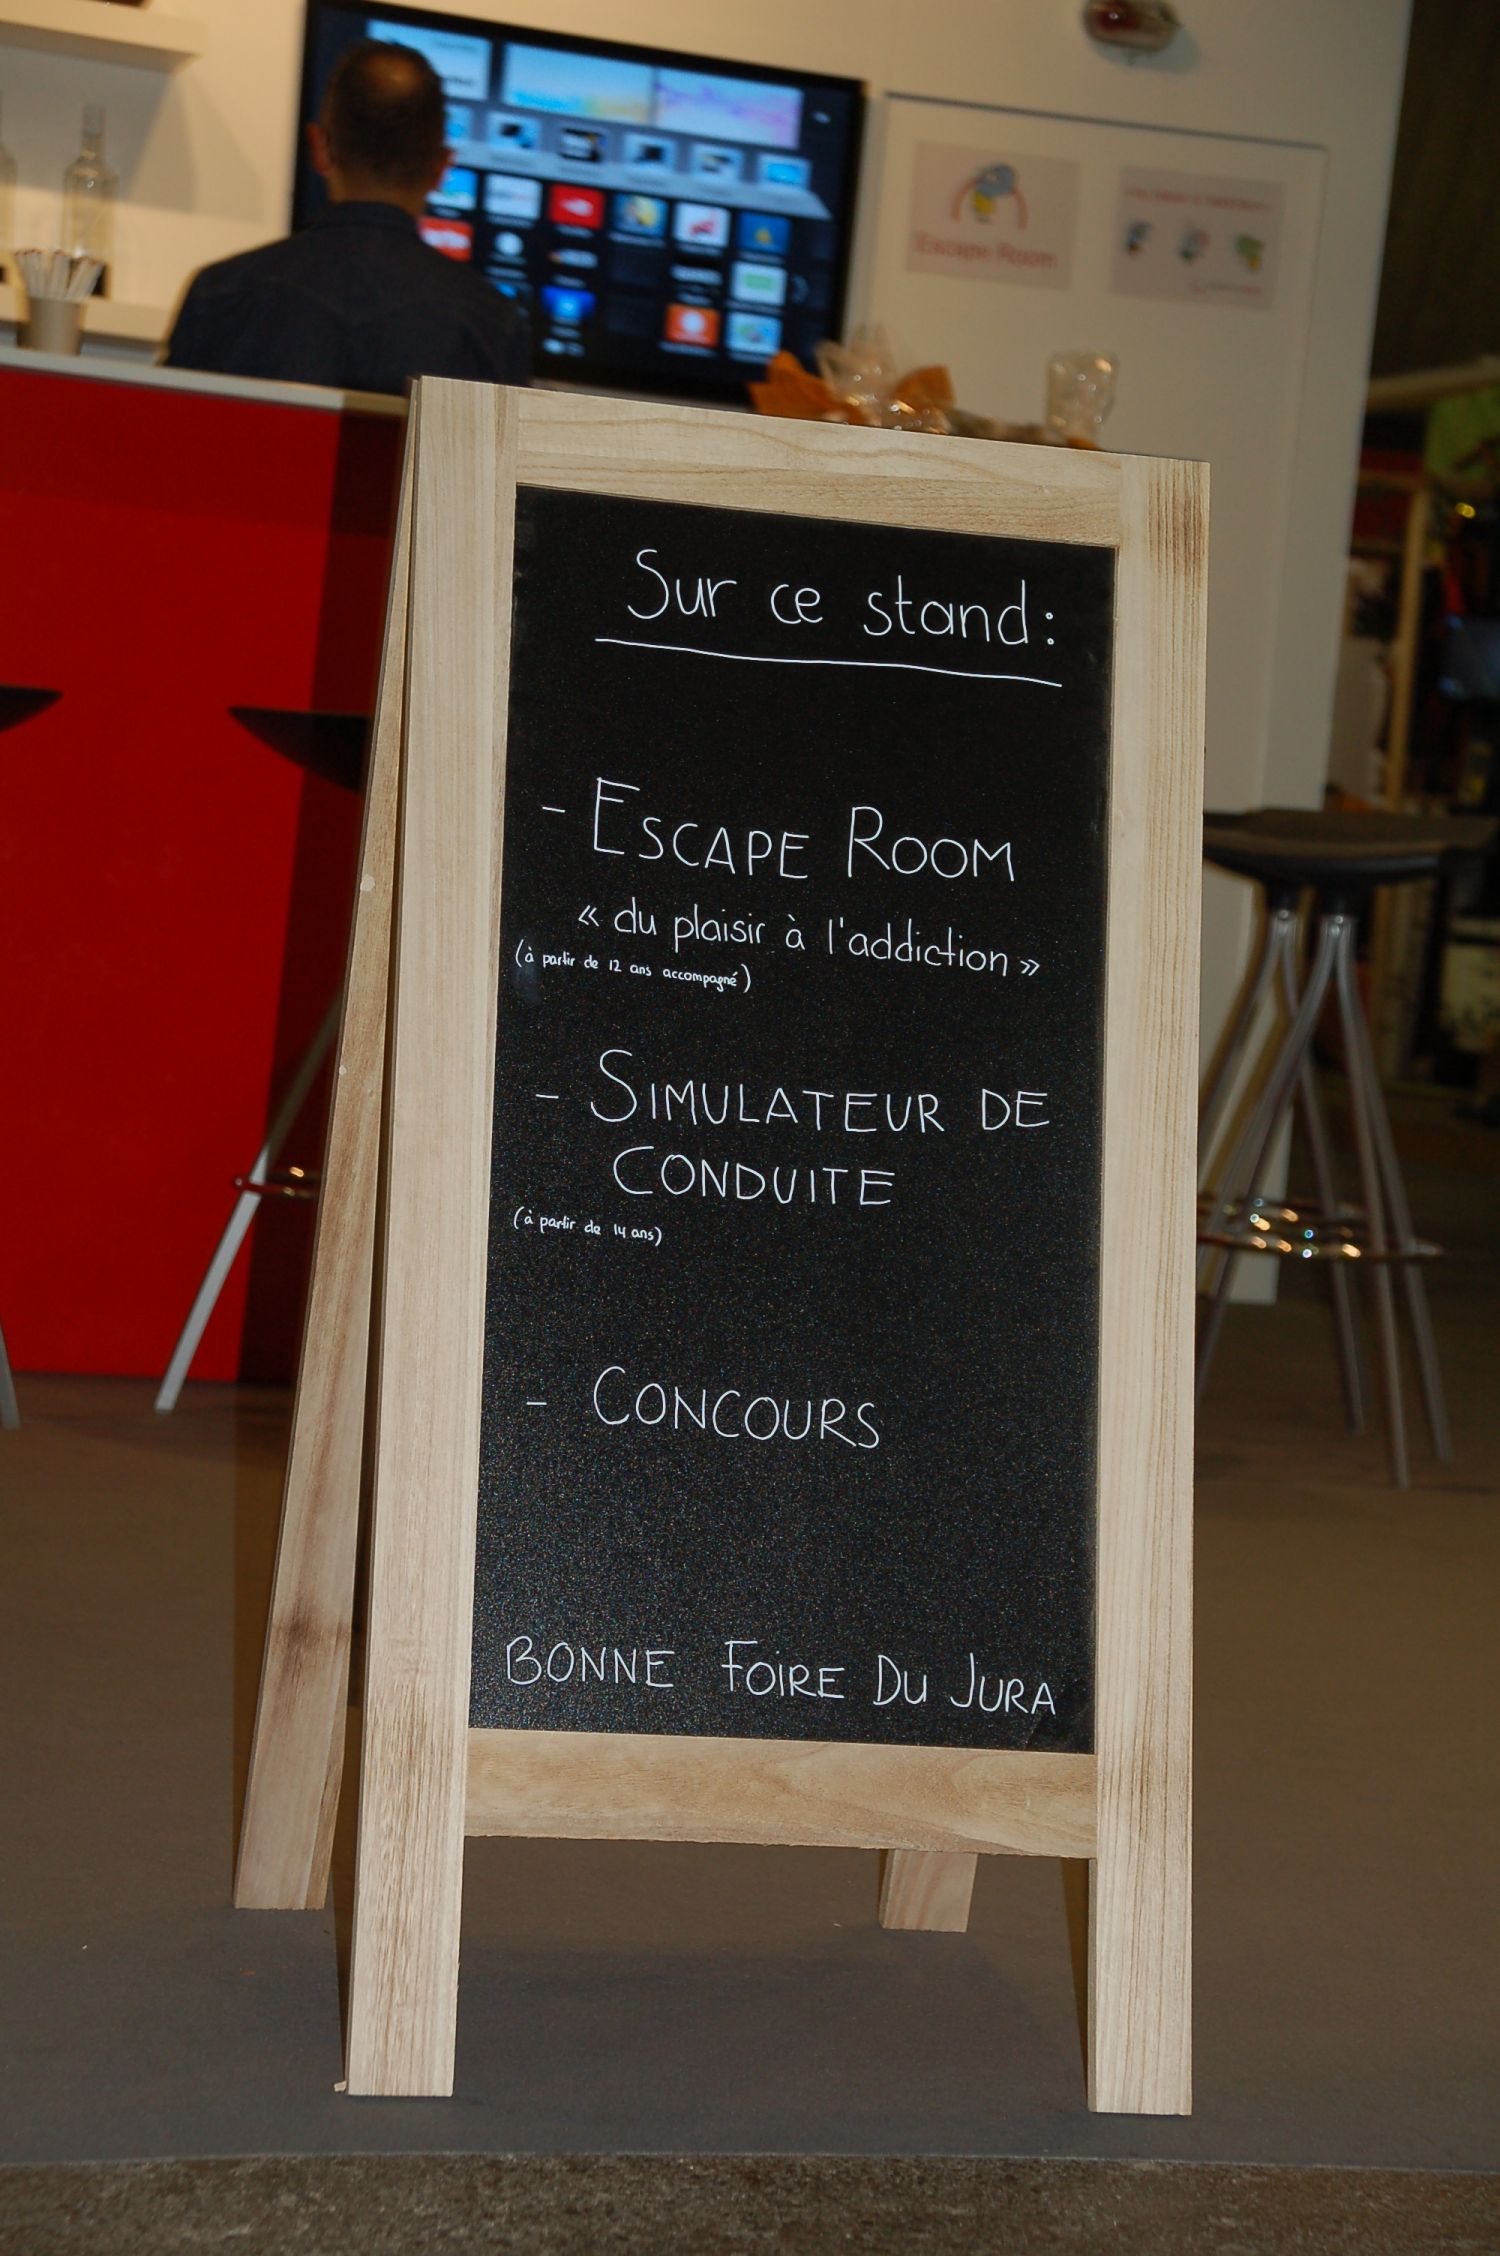 Escape Room
Sur ce stand :
- ESCAPE ROOM
« du plaisir à l'addiction »
(à partir de 12 ans accompagné)
- SIMULATEUR DE
CONDUITE
(à partir de 14 ans)
- CONCOURS
BONNE FOIRE DU JURA